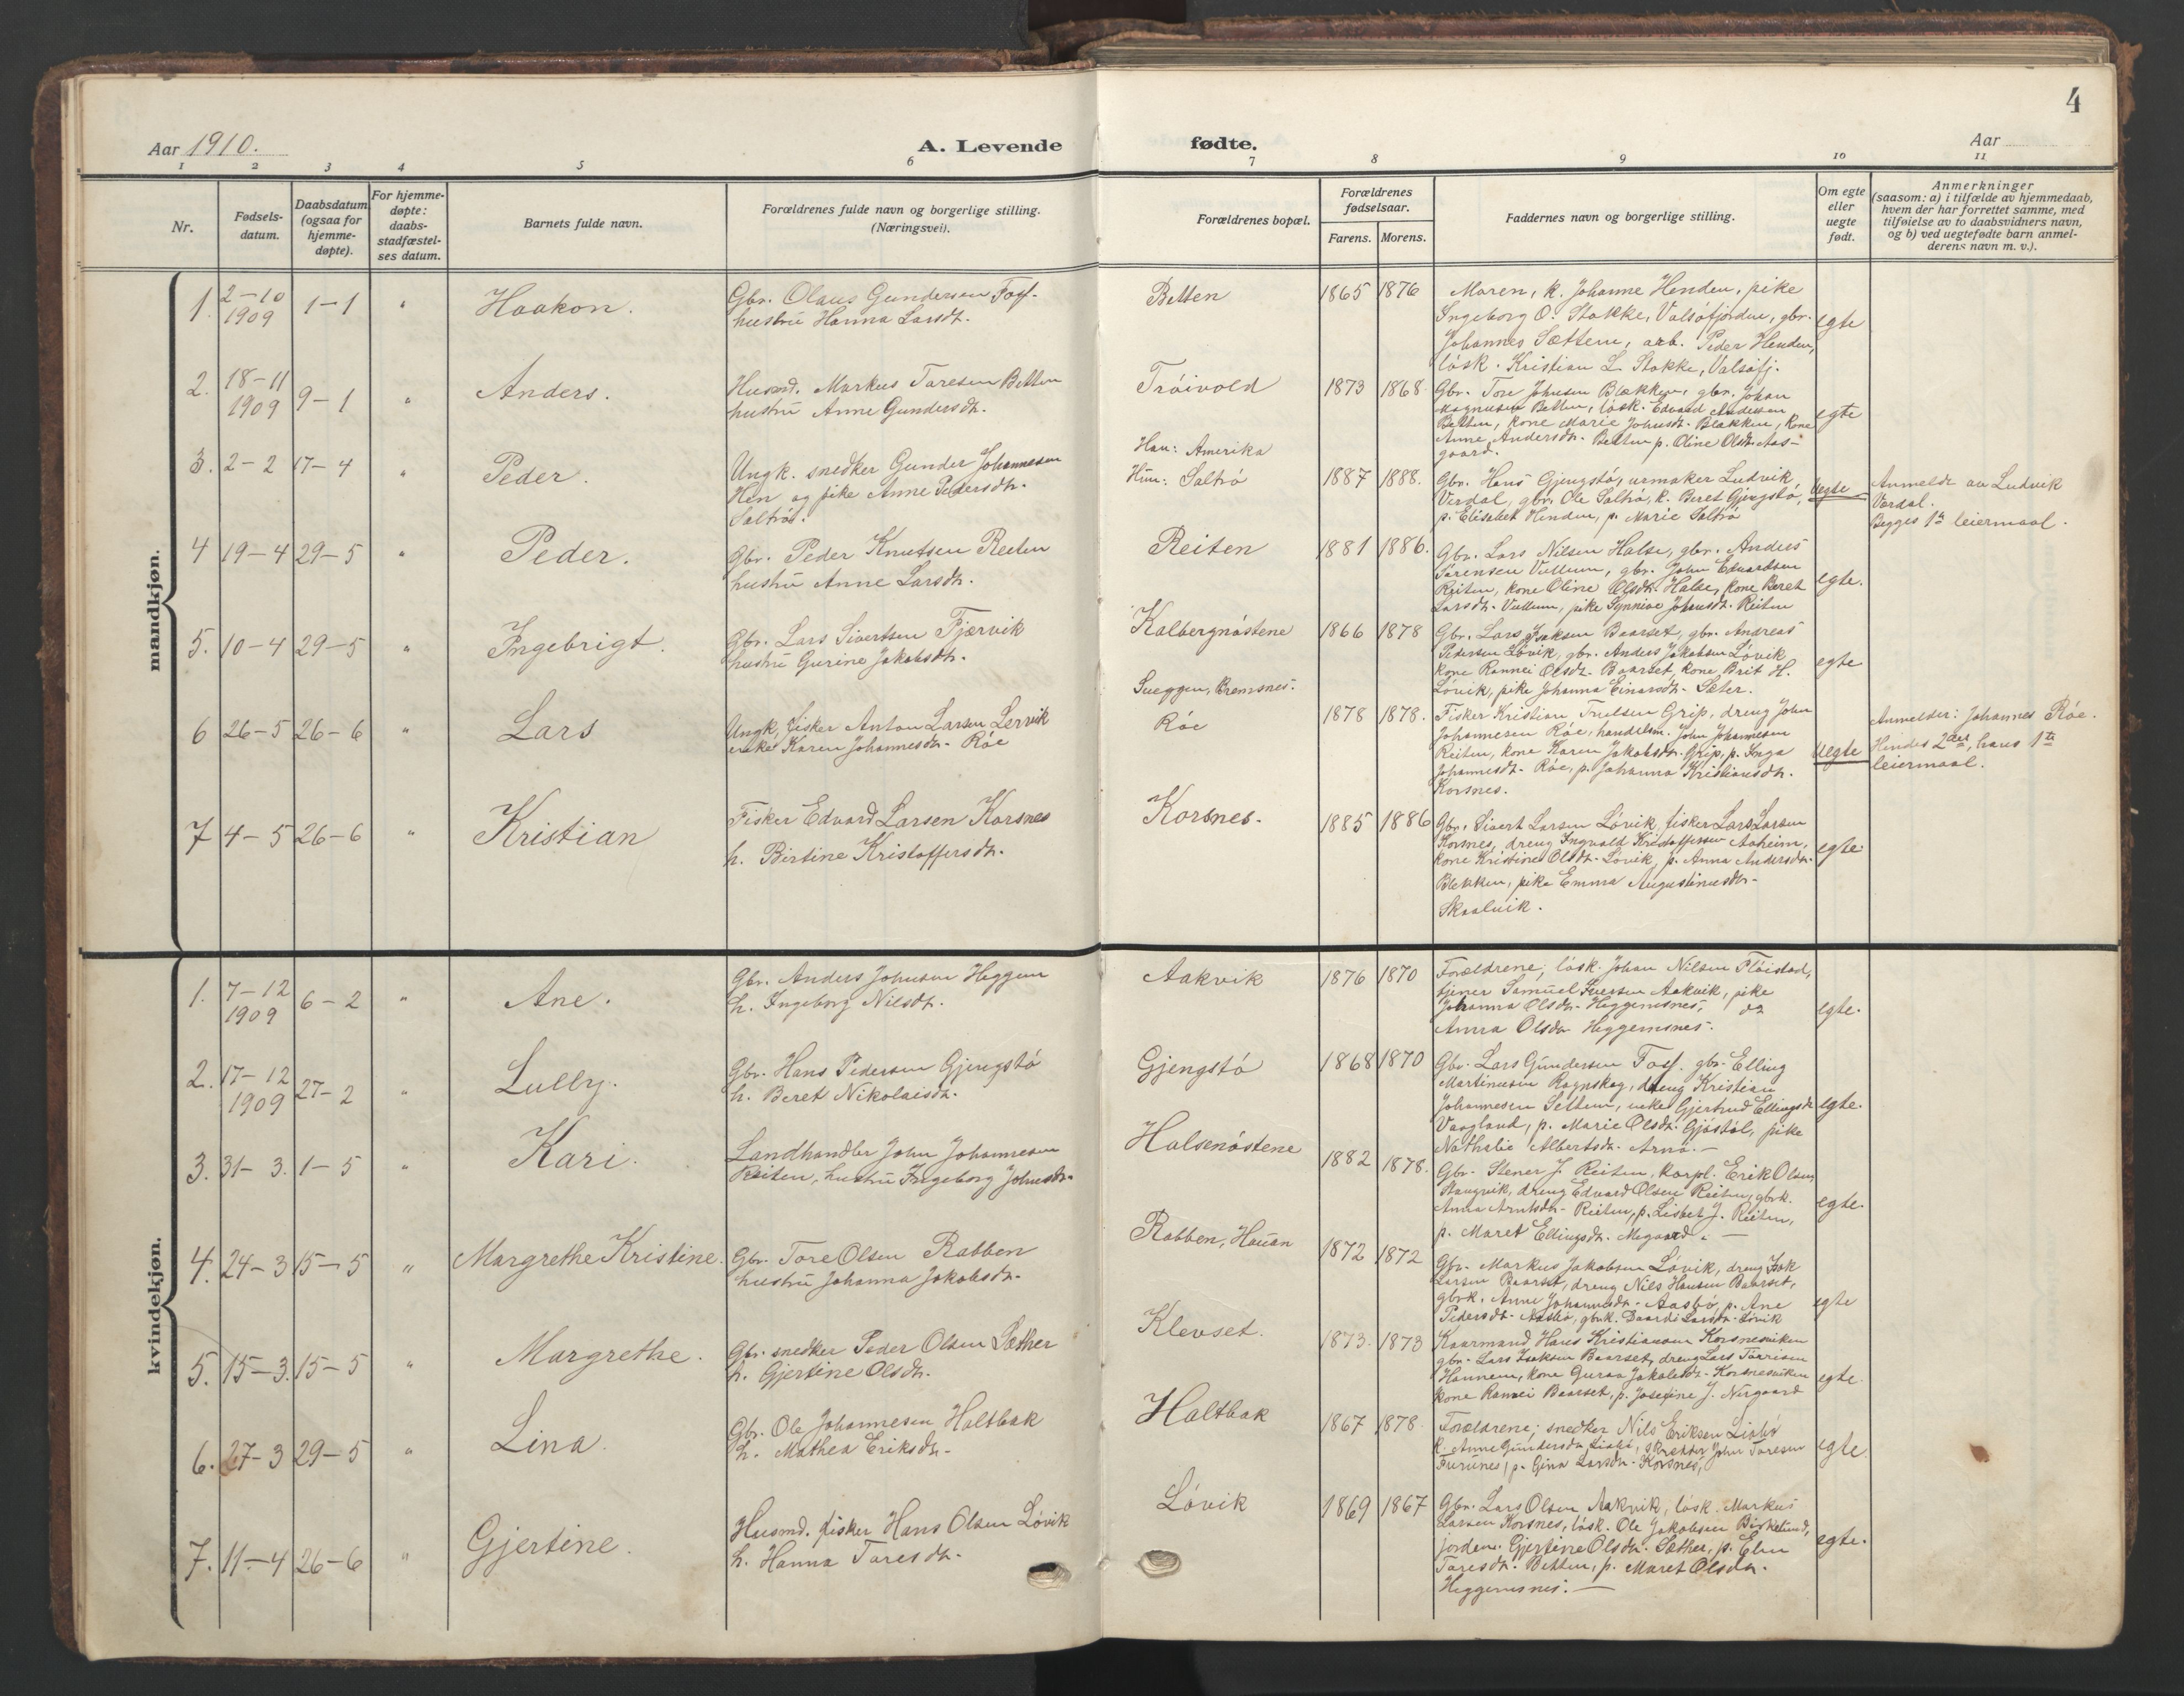 4
Aar 1910.
A. Levende
fødte.
Aar
1 2 3 4 5 6 7 8 9 10 11
Nr.
Fødsels-
datum.
Daabsdatum
(ogsaa for
hjemme-
døpte).
For hjemme-
døpte:
daabs-
stadfæstel-
ses datum.
Barnets fulde navn.
Forældrenes fulde navn og borgerlige stilling.
(Næringsvei).
Forældrenes bopæl.
Forældrenes
fødselsaar.
Farens. Morens.
Faddernes navn og borgerlige stilling.
Om egte
eller
uegte
født.
Anmerkninger
(saasom: a) i tilfælde av hjemmedaab,
hvem der har forrettet samme, med
tilføielse av to daabsvidners navn,
og b) ved uegtefødte barn anmel-
derens navn m. v.).
mandkjøn.
1. 2-10
1909
1-1
"
Haakon.
Gbr. Olaus Gundersen Foss.
hustru Hanna Larsdr.
Betten
1865 1876
Maren, k. Johanne Henden, pike
Ingeborg O. Stokke, Valsøfjorden, gbr.
Johannes Sættem, arb. Peder Henden,
løsk. Kristian L. Stokke, Valsøfj.
egte
2. 18-11
1909
9-1
"
Anders.
Husmd. Markus Taresen Betten
hustru Anne Gundersdr.
Trøivold
1873 1868
Gbr. Tore Johnsen Blækken, gbr. Johan
Magnusen Betten, løsk. Edvard Andersen
Betten, kone Marie Johnsdr. Blækken, kone
Anne Andersdr. Betten p. Oline Olsdr. Aas-
gaard.
egte
3. 2-2 17-4
"
Peder.
Ungk. snedker Gunder Johannesen
Hen og pike Anne Pedersdr.
Saltrø.
Han: Amerika
Hun: Saltrø
1887 1888.
Gbr. Hans Gjengstø, urmaker Ludvik
Verdal, gbr. Ole Saltrø, k. Beret Gjengstø,
p. Elisabet Henden, p. Marie Saltrø
Uegte
Anmeldt av Ludvik
Verdal.
Begges 1ste leiermaal.
4 19-4 29-5
"
Peder.
Gbr. Peder Knutsen Reiten
hustru Anne Larsdr.
Reiten
1881 1886.
Gbr. Lars Nilsen Halse, gbr. Anders
Sørensen Vullum, gbr. John Edvardsen
Reiten, kone Oline Olsdr. Halse, kone Beret
Larsdr. Vullum, pike Synnive Johnsdr. Reiten
egte.
5. 10-4 29-5
"
Ingebrigt.
Gbr. Lars Sivertsen Fjærvik
hustru Gurine Jakobsdr.
Kalbergnøstene
1866 1878
Gbr. Lars Isaksen Baarset, gbr. Andreas
Pedersen Løvik, gbr. Anders Jakobsen Løvik,
kone Rannei Olsdr. Baarset, kone Brit H.
Løvik, pike Johanna Einarsdr. Sæter.
egte
6 26-5 26-6
"
Lars
Ungk. fisker Anton Larsen Lervik
enke Karen Johannesdr. Røe
Sveggen, Bremsnes.
Røe
1878 1878.
Fisker Kristian Truelsen Grip, dreng John
Johannesen Røe, handelsm. John Johannesen
Reiten, kone Karen Jakobsdr. Grip, p. Inga
Johannesdr. Røe, p. Johanna Kristiansdr.
Korsnes.
Uegte
Anmelder: Johannes Røe.
Hendes 2det, hans 1ste
leiermaal.
7 4-5 26-6
"
Kristian
Fisker Edvard Larsen Korsnes
h. Birtine Kristoffersdr.
Korsnes.
1885 1886
Gbr. Sivert Larsen Løvik, fisker Lars Larsen
Korsnes, dreng Ingvald Kristoffersen Aaheim,
kone Kristine Olsdr. Løvik, p. Anna Andersdr.
Blekken, pike Emma Augustinusdr.
Skaalvik.
egte
kvindekjøn.
1. 7-12
1909
6-2
"
Ane.
Gbr. Anders Johnsen Heggem
h. Ingeborg Nilsdr.
Aakvik
1876 1870
Forældrene, løsk. Johan Nilsen Fløistad,
tjener Samuel Iversen Aakvik, pike
Johanna Olsdr. Heggemsnes, do
Anna Olsdr. Heggemsnes.
egte.
2. 17-12
1909
27-2
"
Lully.
Gbr. Hans Pedersen Gjengstø
h. Beret Nikolaisdr.
Gjengstø
1868 1870
Gbr. Lars Gundersen Foss. gbr. Elling
Martinusen Rognskog, dreng Kristian
Johannesen Settem, enke Gjertrud Ellingsdr.
Vaagland, p. Marie Olsdr. Gjøstøl, pike
Nathalie Albertsdr. Arnø.
egte.
3. 31-3. 1-5
"
Kari.
Landhandler John Johannesen
Reiten, hustru Ingeborg Johnsdr.
Halsenøstene
1882 1878.
Gbr. Stener J. Reiten, korpl. Erik Olsen
Stangvik, dreng Edvard Olsen Reiten, gbrk.
Anna Arntsdr. Reiten, p. Lisbet J. Reiten,
p. Maret Ellingsdr. Megaard.
egte.
4. 24-3 15-5
"
Margrethe Kristine.
Gbr. Tore Olsen Rabben
hustru Johanna Jakobsdr.
Rabben, Hauan
1872 1872
Gbr. Markus Jakobsen Løvik, dreng Isak
Larsen Baarset, dreng Nils Hansen Baarset,
gbrk. Anne Johannesdr. Aasbø, p. Ane
Pedersdr. Aasbø, gbrk. Daardi Larsdr. Løvik
egte
5. 15-3. 15-5
"
Margrethe.
Gbr. snedker Peder Olsen Sæther
h. Gjertine Olsdr.
Klevset.
1873. 1873
Kaarmand Hans Kristiansen Korsnesviken
gbr. Lars Isaksen Baarset, dreng Lars Tørrisen
Hannem, kone Guraa Jakobsdr. Korsnesviken
kone Rannei Baarset, p. Josefine J. Nergaard
egte.
6. 27-3 29-5
"
Lina.
Gbr. Ole Johannesen Haltbak
h. Mathea Eriksdr.
Haltbak
1867 1878.
Forældrene; snedker Nils Eriksen Liabø
k. Anne Gundersdr. Liabø, skrædder John Taresen
Furunes, p. Gina Larsdr. Korsnes,
egte.
7. 11-4 26-6
"
Gjertine.
Husmd. fisker Hans Olsen Løvik
h. Hanna Taresdr.
Løvik
1869 1867
Gbr. Lars Olsen Aakvik, løsk. Markus
Larsen Korsnes, løsk. Ole Jakobsen Birkelund,
jordem. Gjertine Olsdr. Sæther, p. Elen
Taresdr. Betten, p. Maret Olsdr.
Heggemsnes.
egte.